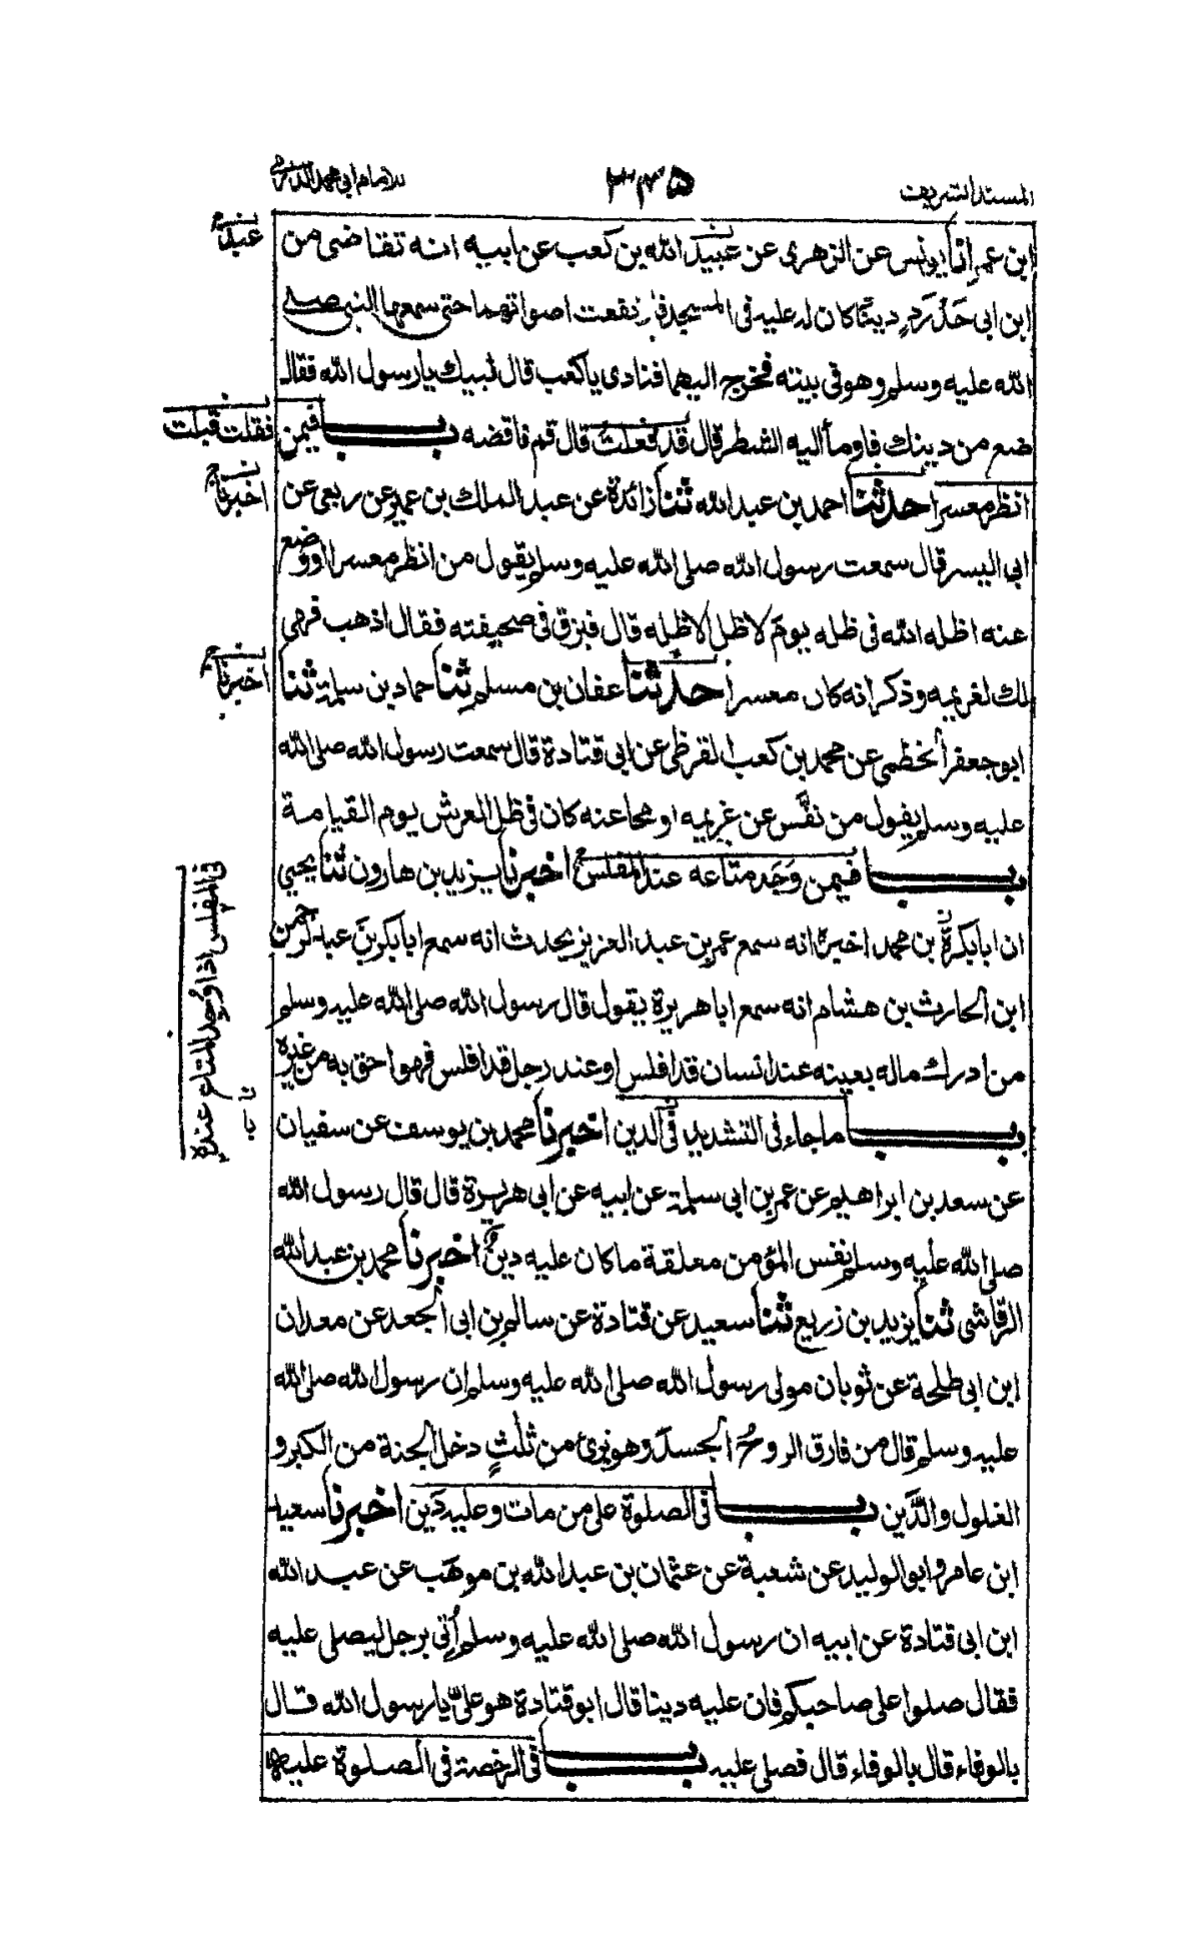 المسند الشريف
٣٣٥
للامام ابی محمد الدارمی
ابن عمر انا يونس عن الزهری عن عبيد الله بن كعب عن ابيه انه تقاضى من
ابن ابی حَدْرَدٍ دينًا كان له عليه فی المسجد فارتفعت اصواتهما حتى سمعها النبی صلے
الله عليه وسلم وهو فی بيته فخرج اليهما فنادى يا كعب قال لبيك يا رسول الله فقال
ضع من دينك فاومأ اليه الشطر قال قد فعلتُ قال قم فاقضه بــاب فيمن
انظر معسرا حدثنا احمد بن عبد الله ثنا زائدة عن عبد الملك بن عمير عن ربعی عن
ابی اليسر قال سمعت رسول الله صلى الله عليه وسلم يقول من انظر معسرا او وضع
عنه اظله الله فی ظله يوم لا ظل الا ظله قال فبزق فی صحيفته فقال اذهب فهی
لك لغريمه وذكر انه كان معسرا حدثنا عفان بن مسلم ثنا حماد بن سلمة ثنا
ابو جعفر الخطمی عن محمد بن كعب القرظی عن ابی قتادة قال سمعت رسول الله صلى الله
عليه وسلم يقول من نفَّس عن غريمه او محا عنه كان فی ظل العرش يوم القيامة
بــاب فيمن وَجَد متاعه عند المفلس اخبرنا يزيد بن هارون ثنا يحيی
ان ابا بكرة بن محمد اخبره انه سمع عمر بن عبد العزيز يحدث انه سمع ابا بكر بن عبد الرحمن
ابن الحارث بن هشام انه سمع ابا هريرة يقول قال رسول الله صلى الله عليه وسلم
من ادرك ماله بعينه عند انسان قد افلس او عند رجل قد افلس فهو احق به من غيره
بــاب ما جاء فی التشديد فی الدين اخبرنا محمد بن يوسف عن سفيان
عن سعد بن ابراهيم عن عمر بن ابی سلمة عن ابيه عن ابی هريرة قال قال رسول الله
صلى الله عليه وسلم نفس المؤمن معلقة ما كان عليه دينٌ اخبرنا محمد بن عبد الله
الرقاشی ثنا يزيد بن زريع ثنا سعيد عن قتادة عن سالم بن ابی الجعد عن معدان
ابن ابی طلحة عن ثوبان مولى رسول الله صلى الله عليه وسلم ان رسول الله صلى الله
عليه وسلم قال من فارق الروحُ الجسدَ وهو بریٔ من ثلٰثٍ دخل الجنة من الكبر و
الغلول والدَّين بــاب فی الصلوة على من مات وعليه دَين اخبرنا سعيد
ابن عامر وابو الوليد عن شعبة عن عثمان بن عبد الله بن موهَب عن عبد الله
ابن ابی قتادة عن ابيه ان رسول الله صلى الله عليه وسلم اُتی برجل ليصلی عليه
فقال صلوا على صاحبكم فان عليه دينا قال ابو قتادة هو علیَّ يا رسول الله قال
بالوفاء قال بالوفاء قال فصلى عليه بــاب فی الرخصة فی الصلوة عليها
عبد
فقلت قبلت
اخبرنا
اخبرنا
باب
فی المفلس اذا وُجد المتاع عنده